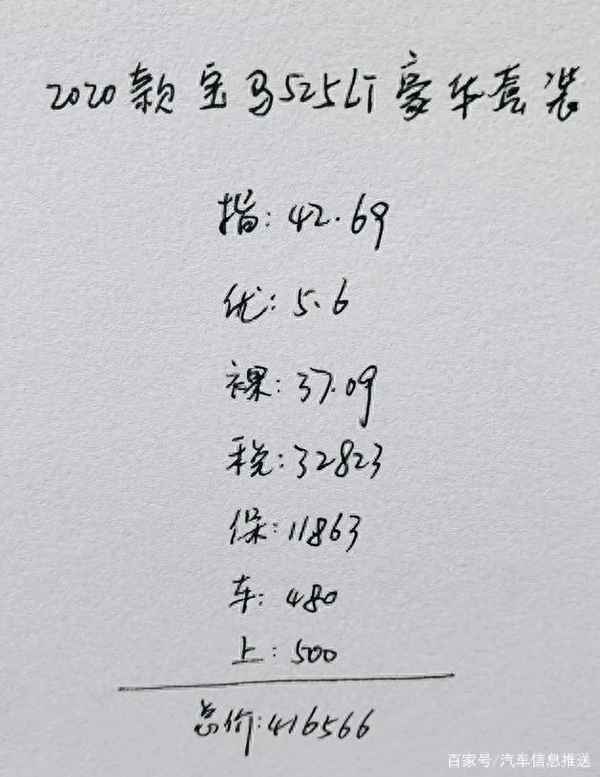 2020款宝马525Li豪华套装
指:42.69
优:5.6
裸:37.09
税:32823
保:11863
车:480
上:500
总价:416566
百家号/汽车信息推送